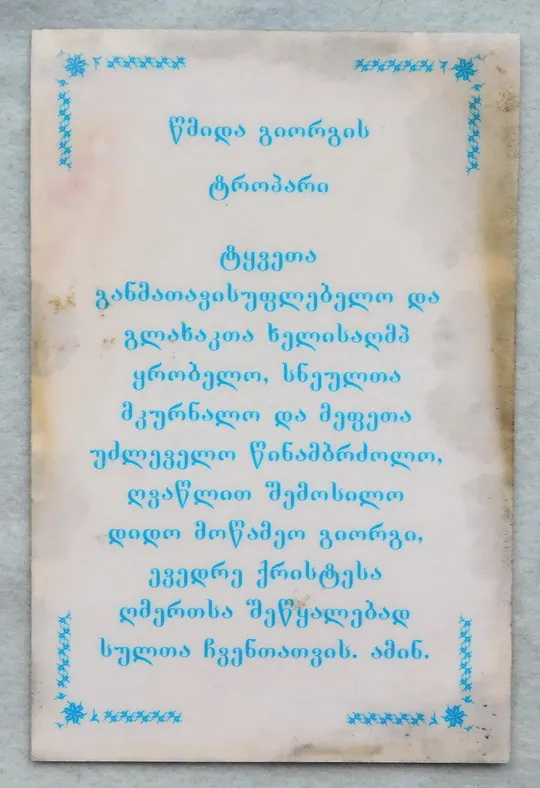 წმიდა გიორგის
ტროპარი
ტყვეთა
განმათავისუფლებელო და
გლახაკთა ხელისაღმპ
ყრობელო, სნეულთა
მკურნალო და მეფეთა
უძლეველო წინამბრძოლო,
ღვაწლით შემოსილო
დიდო მოწამეო გიორგი,
ევედრე ქრისტესა
ღმერთსა შეწყალებად
სულთა ჩვენთათვის. ამინ.